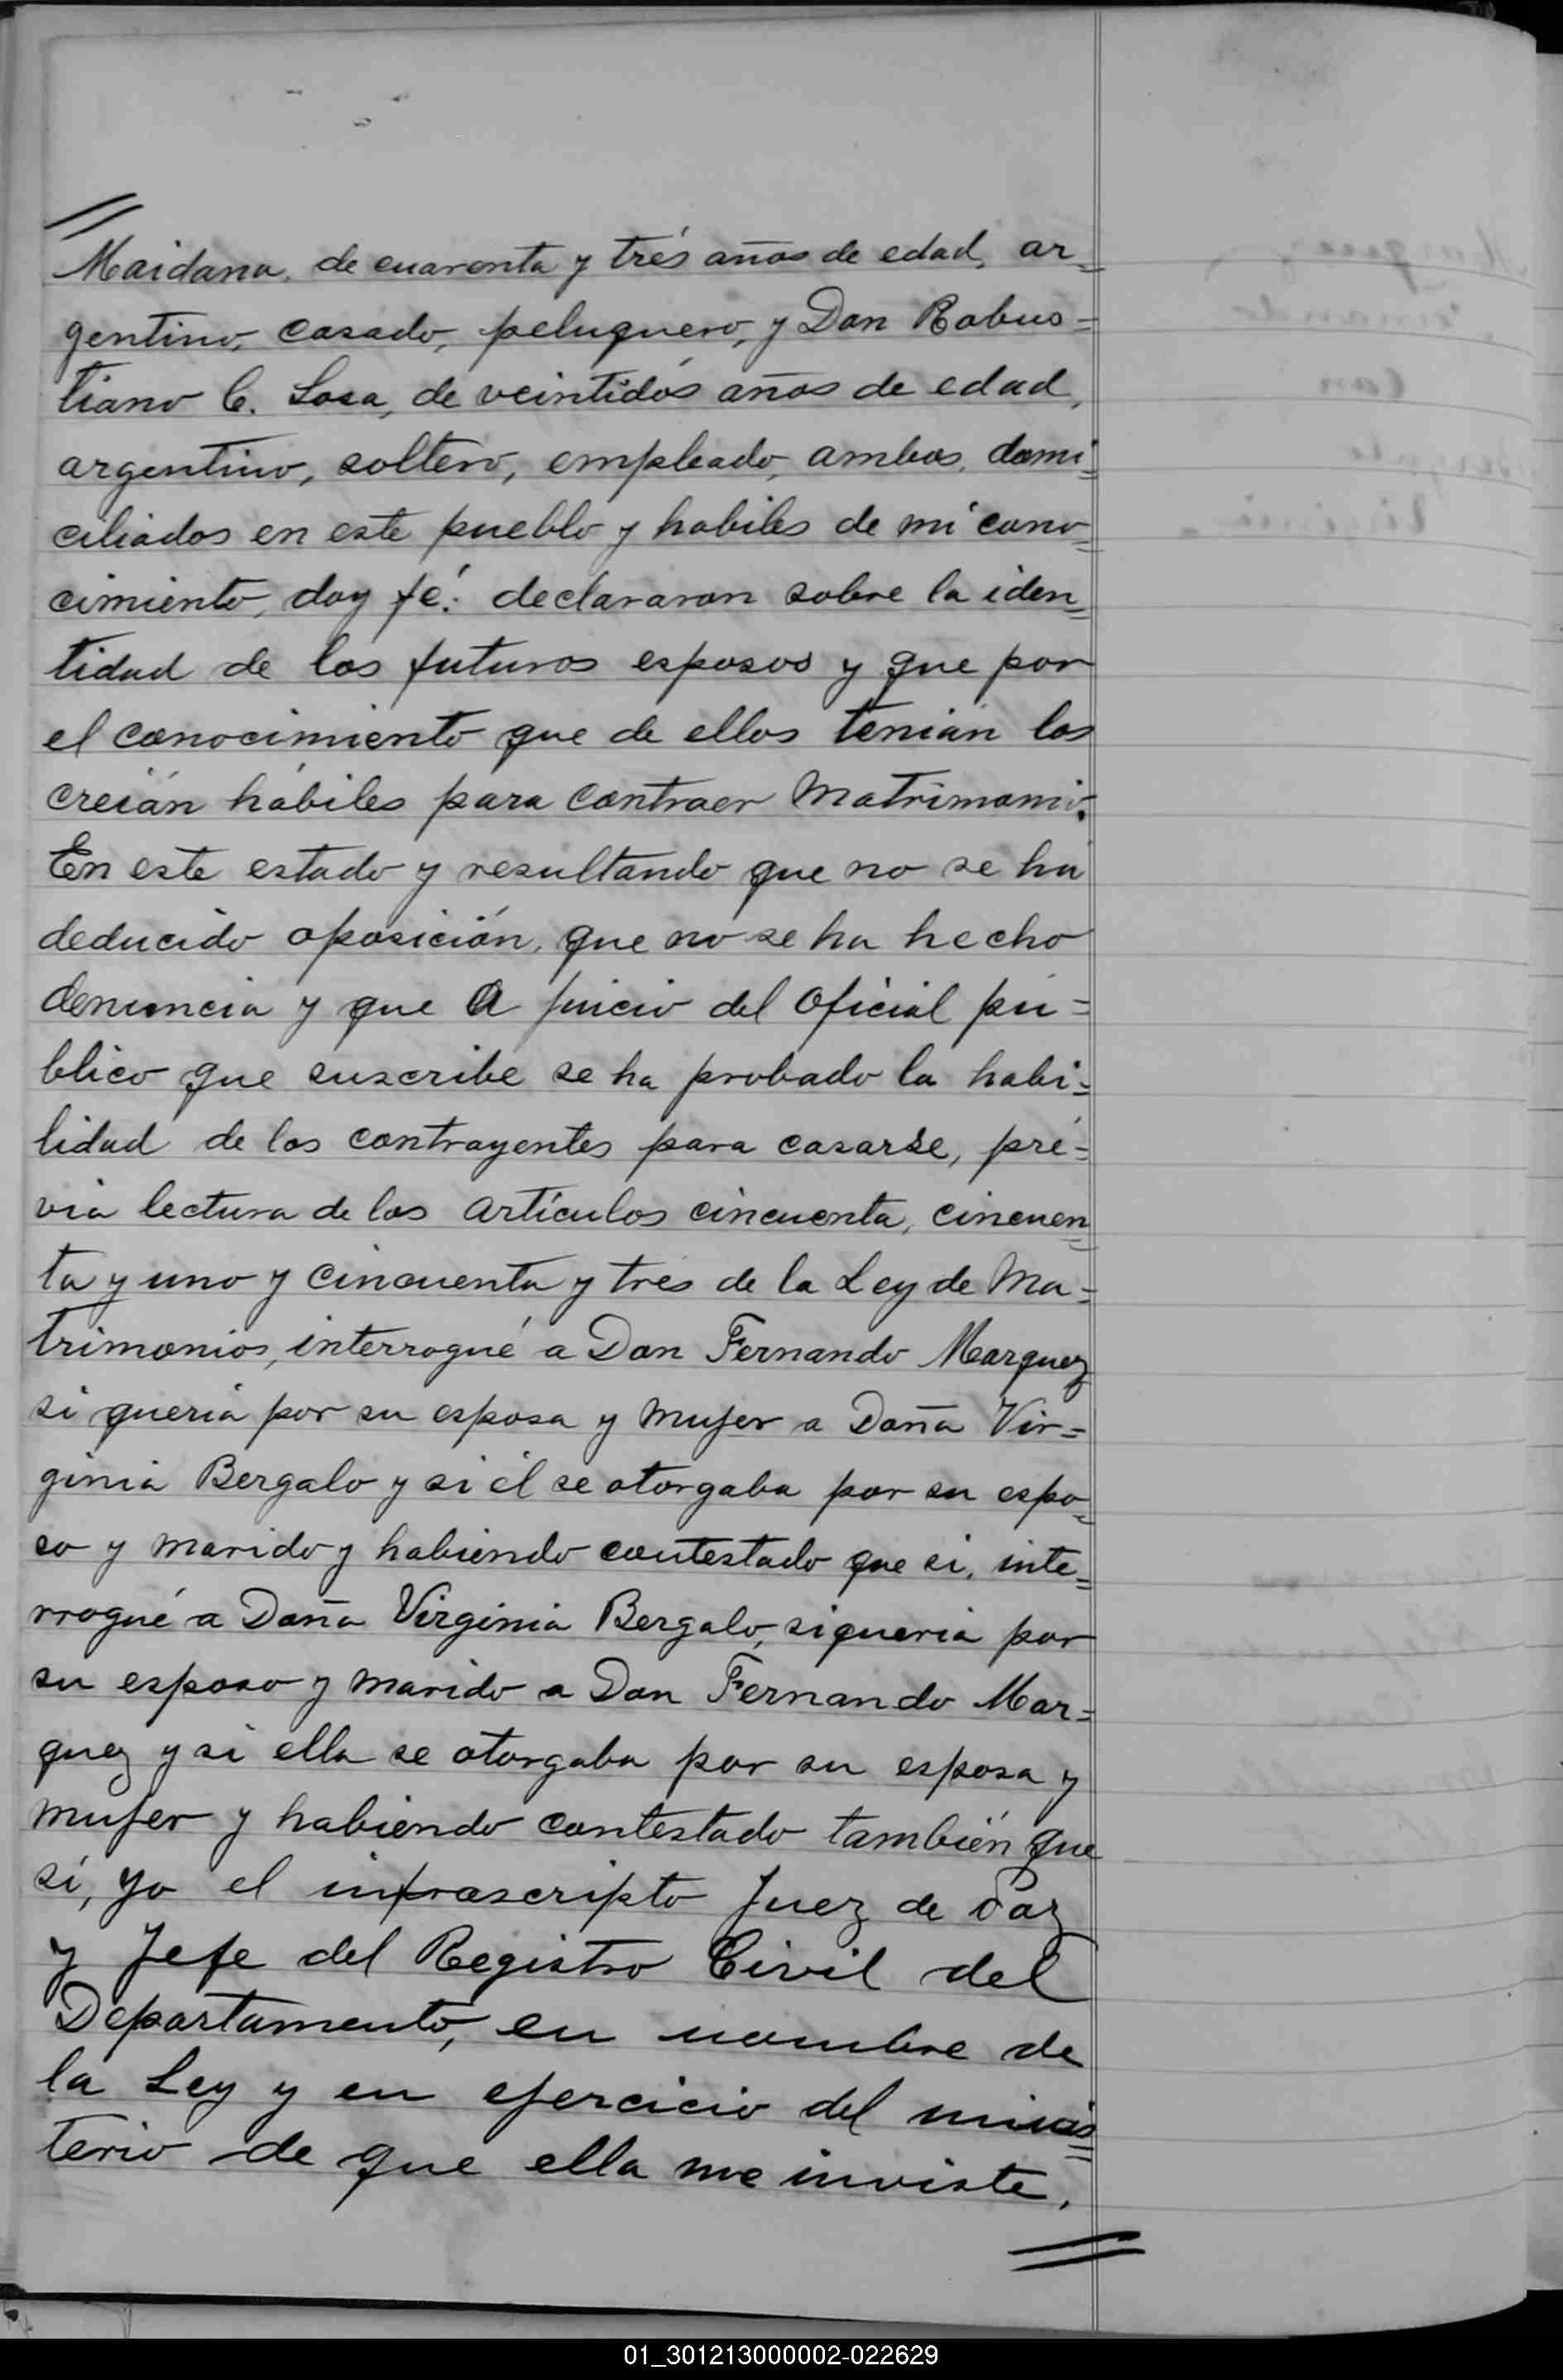 Maidana, de cuarenta y trés años de edad, ar=
gentino, casado, peluquero, y Don Robus=
tiano C. Sosa, de veintidós años de edad,
argentino, soltero, empleado, ambos domi=
ciliados en este pueblo y habiles de mi cono=
cimiento, doy fé: declararon sobre la iden=
tidad de los futuros esposos y que por
el conocimiento que de ellos tenián los
creián hábiles para contraer Matrimonio.
En este estado y resultando que no se ha
deducido oposición, que no se ha hecho
denuncia y que a juicio del Oficial pú=
blico que suscribe se ha probado la habi=
lidad de los contrayentes para casarse, pré=
via lectura de los artículos cincuenta, cincuen=
ta y uno y cincuenta y tres de la Ley de Ma=
trimonios, interrogué a Don Fernando Marquez
si queria por su esposa y mujer a Doña Vir=
ginia Bergalo y si él se otorgaba por su espo=
so y marido y habiendo contestado que si, inte=
rrogué a Doña Virginia Bergalo, si queria por
su esposo y marido a Don Fernando Mar=
quez y si ella se otorgaba por su esposa y
mujer y habiendo contestado también que
sí, yo el infrascripto Juez de Paz
y Jefe del Registro Civil del
Departamento, en nombre de
la Ley y en ejercicio del minis=
terio de que ella me inviste,
01_301213000002-022629